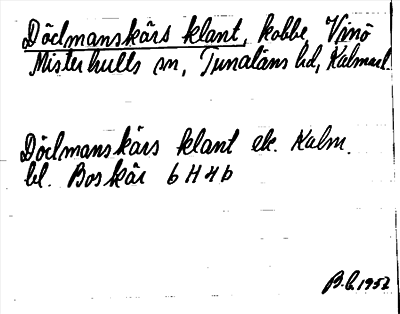 Dödmanskärs klant, kobbe Vinö
Misterhults sn, Tunaläns hd, Kalmarl.
Dödmanskärs klant ek. Kalm.
bl. Boskär 6H4b
B.C. 1952